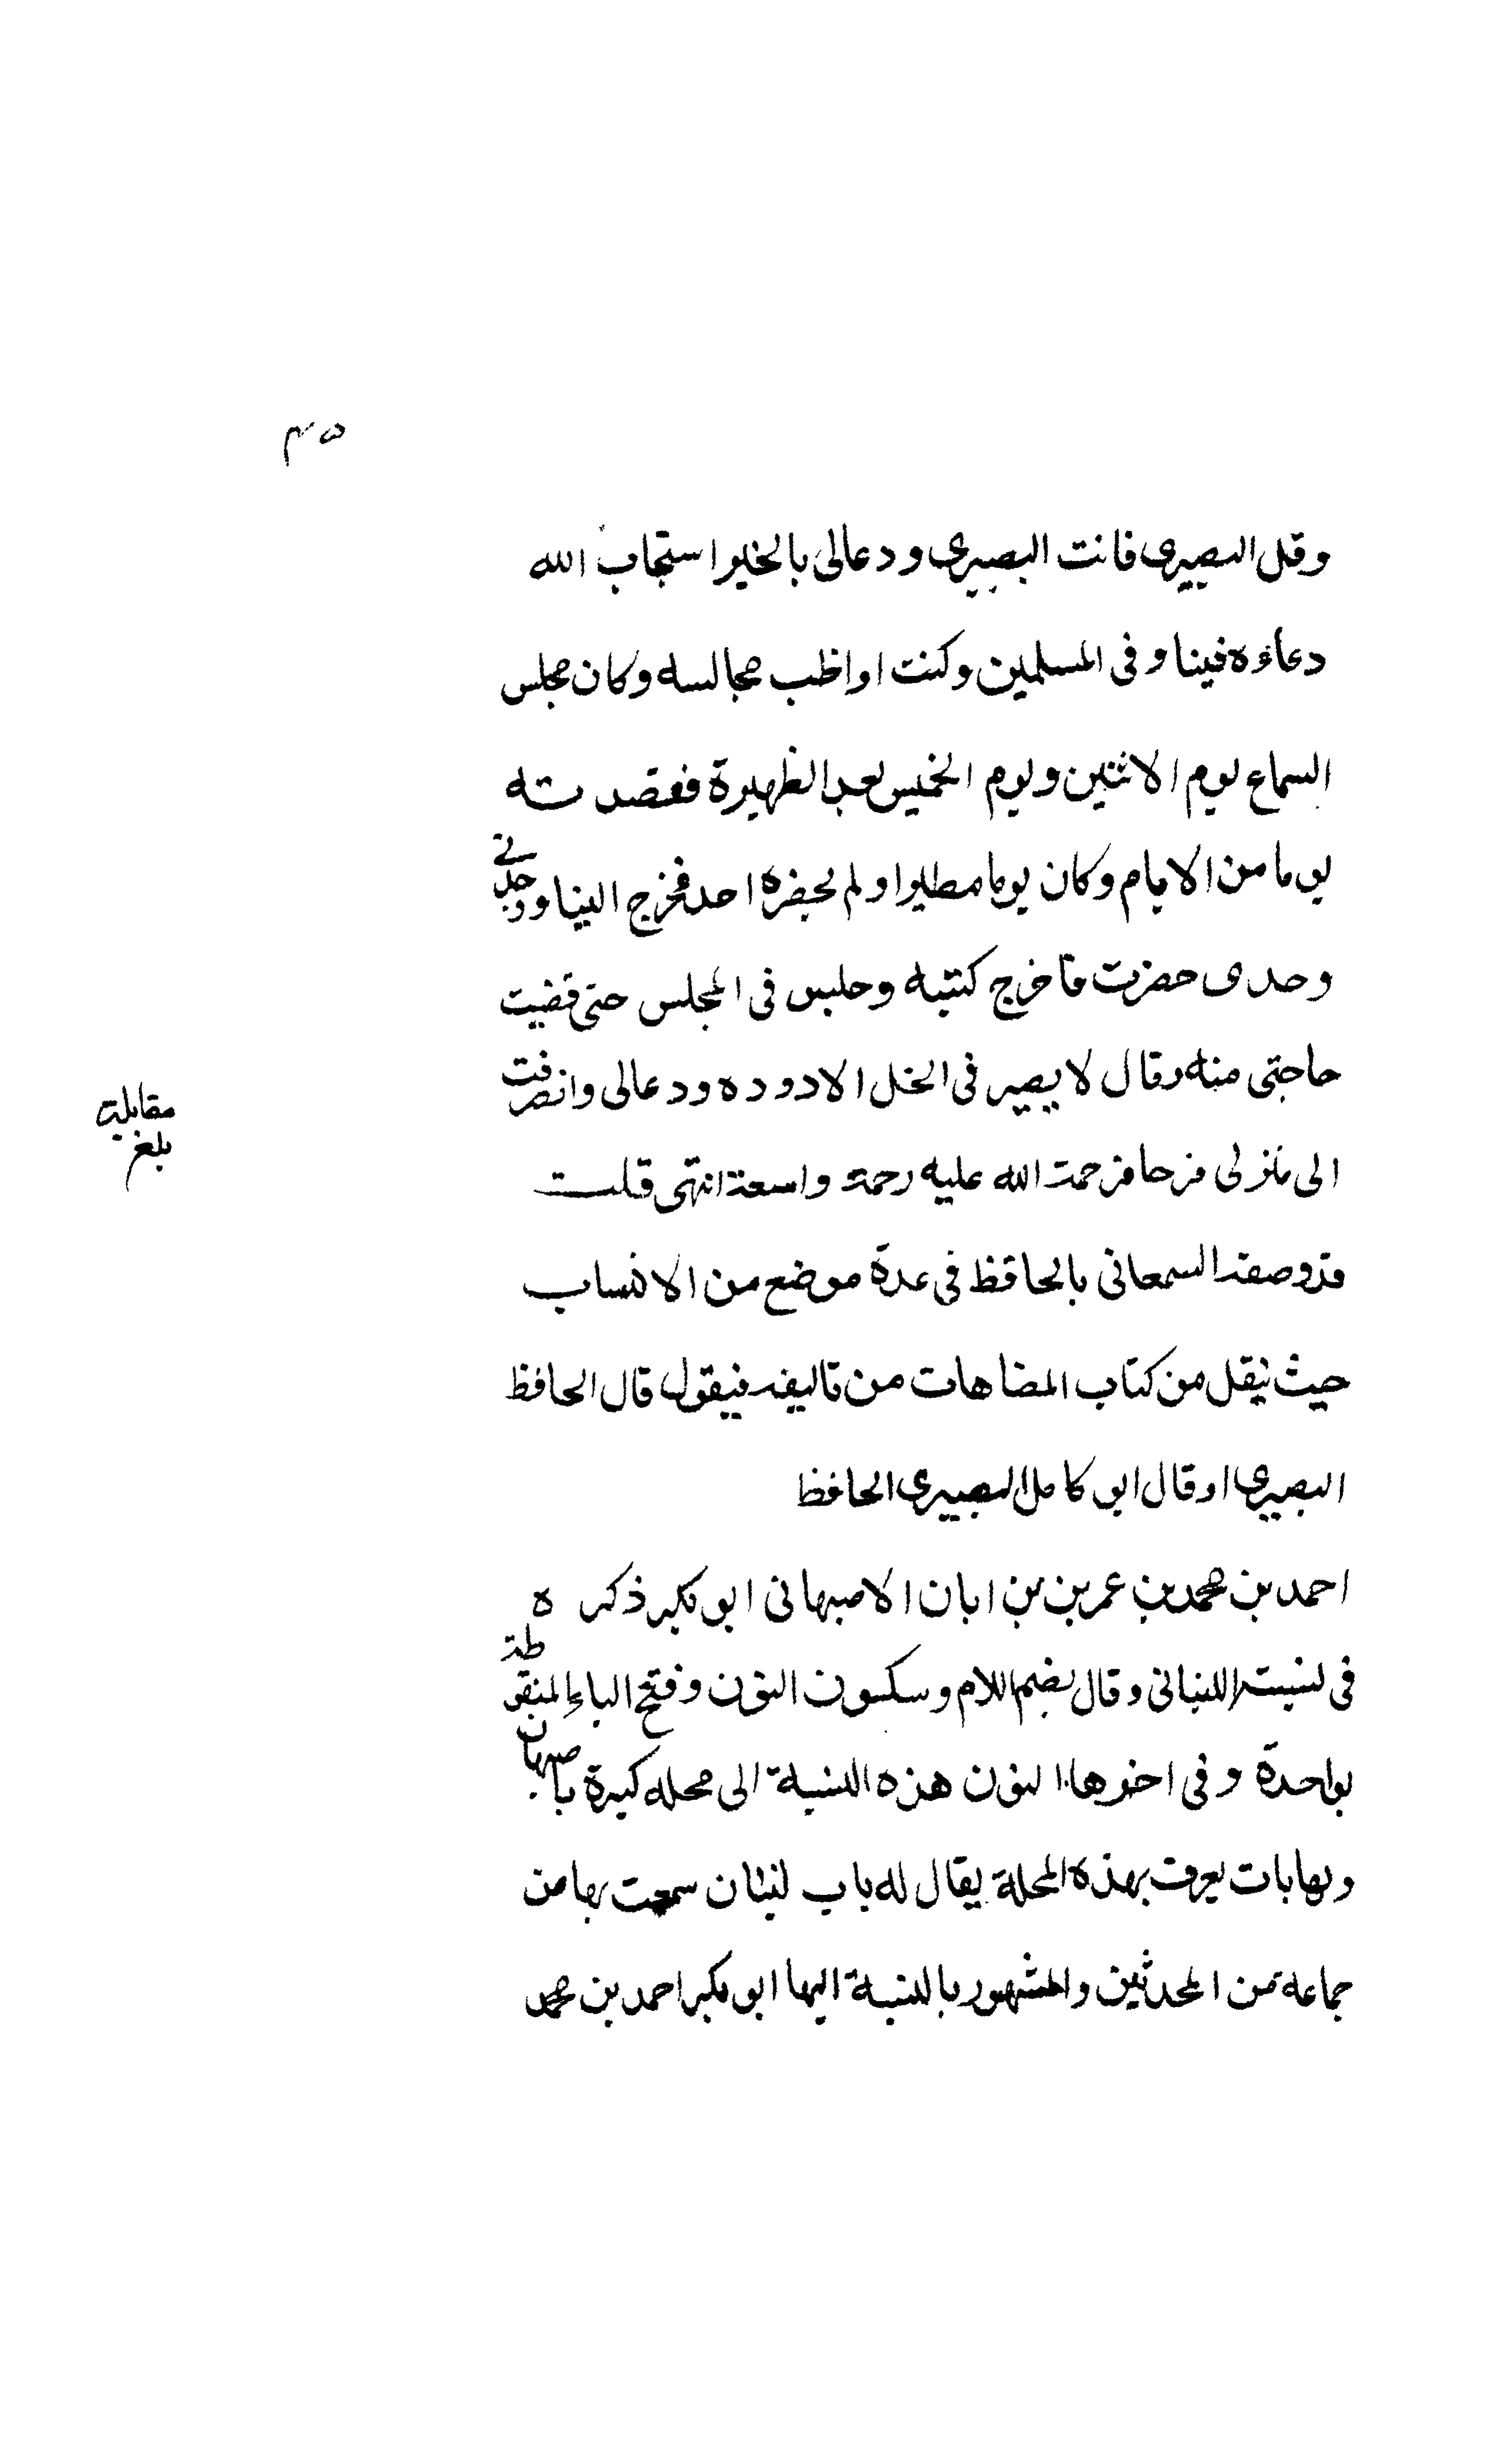 ٤٥
وقل البصيرى فانت البصيرى ودعالى بالخير استجاب الله
دعاءه فينا وفى المسلمين وكنت اواظب مجالسه وكان مجلس
السماع يوم الاثنين ويوم الخميس بعد الظهيرة فقصدته
يوما من الايام وكان يوما مطيرا ولم يحضره احد فخرج الينا ووجدنى
وحدى حضرت فاخرج كتبه وجلس فى المجلس حتى قضيت
حاجتى منه وقال لا يصير فى الخل الا دوده ودعالى وانصرفت
الى منزلى فرحا فرحمة الله عليه رحمة واسعة انتهى قلت
قد وصفه السمعانى بالحافظ فى عدة موضع من الانساب
حيث ينقل من كتاب المضاهات من تاليفه فيقول قال الحافظ
البصيرى او قال ابو كامل البصيرى الحافظ
احمد بن محمد بن عمر بن بن ابان الاصبهانى ابو بكر ذكره
فى نسبة اللنبانى وقال بضم اللام وسكون النون وفتح الباء المنقوطة
بواحدة وفى اخرها النون هذه النسبة الى محله كبيرة باصبهان
وبها بات يعرف بهذه المحلة يقال له باب لنبان سمعت بها من
جماعة من المحدثين والمشهور بالنسبة اليها ابو بكر احمد بن محمد
مقابلة
بلغ